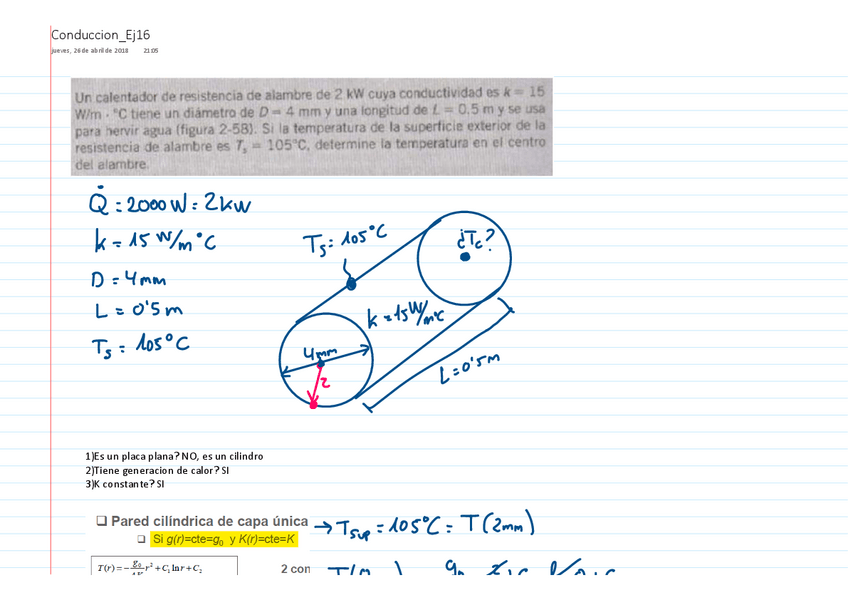 Conduccion_Ej16
jueves, 26 de abril de 2018 21:05
Un calentador de resistencia de alambre de 2 kW cuya conductividad es k = 15
W/m · °C tiene un diámetro de D = 4 mm y una longitud de L = 0.5 m y se usa
para hervir agua (figura 2-58). Si la temperatura de la superficie exterior de la
resistencia de alambre es Ts = 105°C, determine la temperatura en el centro
del alambre.
Q̇ = 2000 W = 2 kW
k = 15 W/m°C
D = 4 mm
L = 0'5 m
Ts = 105°C
Ts = 105°C
¿Tc?
k = 15 W/m°C
4mm
2
L = 0'5 m
1)Es un placa plana? NO, es un cilindro
2)Tiene generacion de calor? SI
3)K constante? SI
❑ Pared cilíndrica de capa única
→ Tsup = 105°C = T(2mm)
❑ Si g(r)=cte=g₀ y K(r)=cte=K
T(r) = - g₀/4K r² + C₁ ln r + C₂
2 con